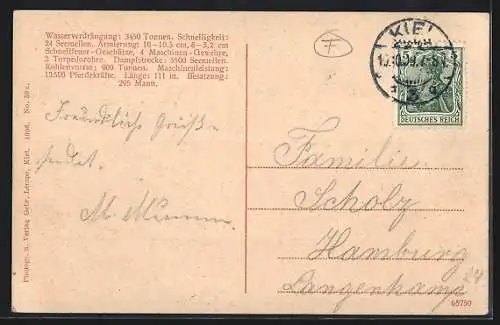 Wasserverdrängung: 3450 Tonnen. Schnelligkeit:
24 Seemeilen. Armierung: 10–10,5 cm, 8–5,2 cm
Schnellfeuer-Geschütze, 4 Maschinen-Gewehre,
2 Torpedorohre. Dampfstrecke: 5500 Seemeilen.
Kohlenvorrat: 900 Tonnen. Maschinenleistung:
13500 Pferdekräfte. Länge: 111 m. Besatzung:
295 Mann.
KIEL
DEUTSCHES REICH
Freundliche Grüße
sendet.
M.
Familie
Scholz
Hamburg
Langenkamp
24
05790
Photogr. u. Verlag Gebr. Lempe, Kiel. 1906. No.